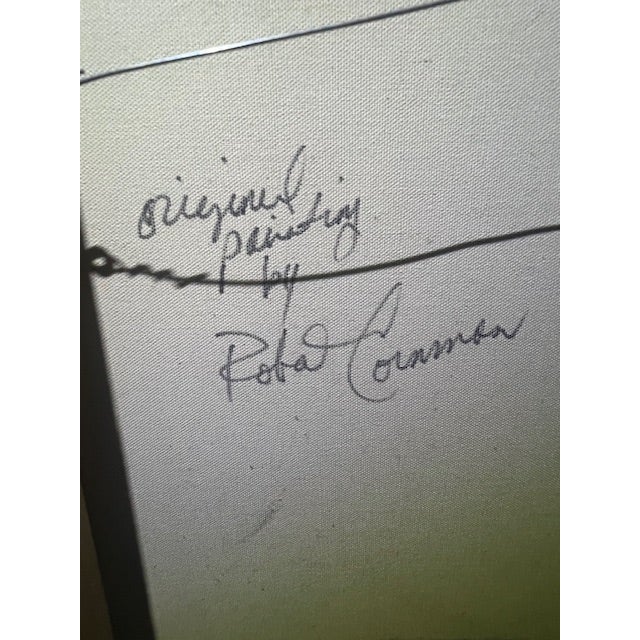 original
painting
by
Robert Cornman